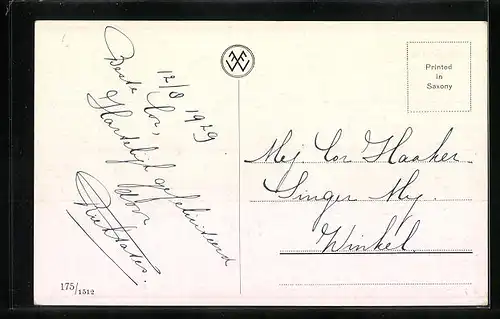 12/8 1929.
Beste Cor,
Hartelijk gefeliciteerd
door
175/1512
Printed
in
Saxony
Mej Cor Haaker
Singer Mij.
Winkel.